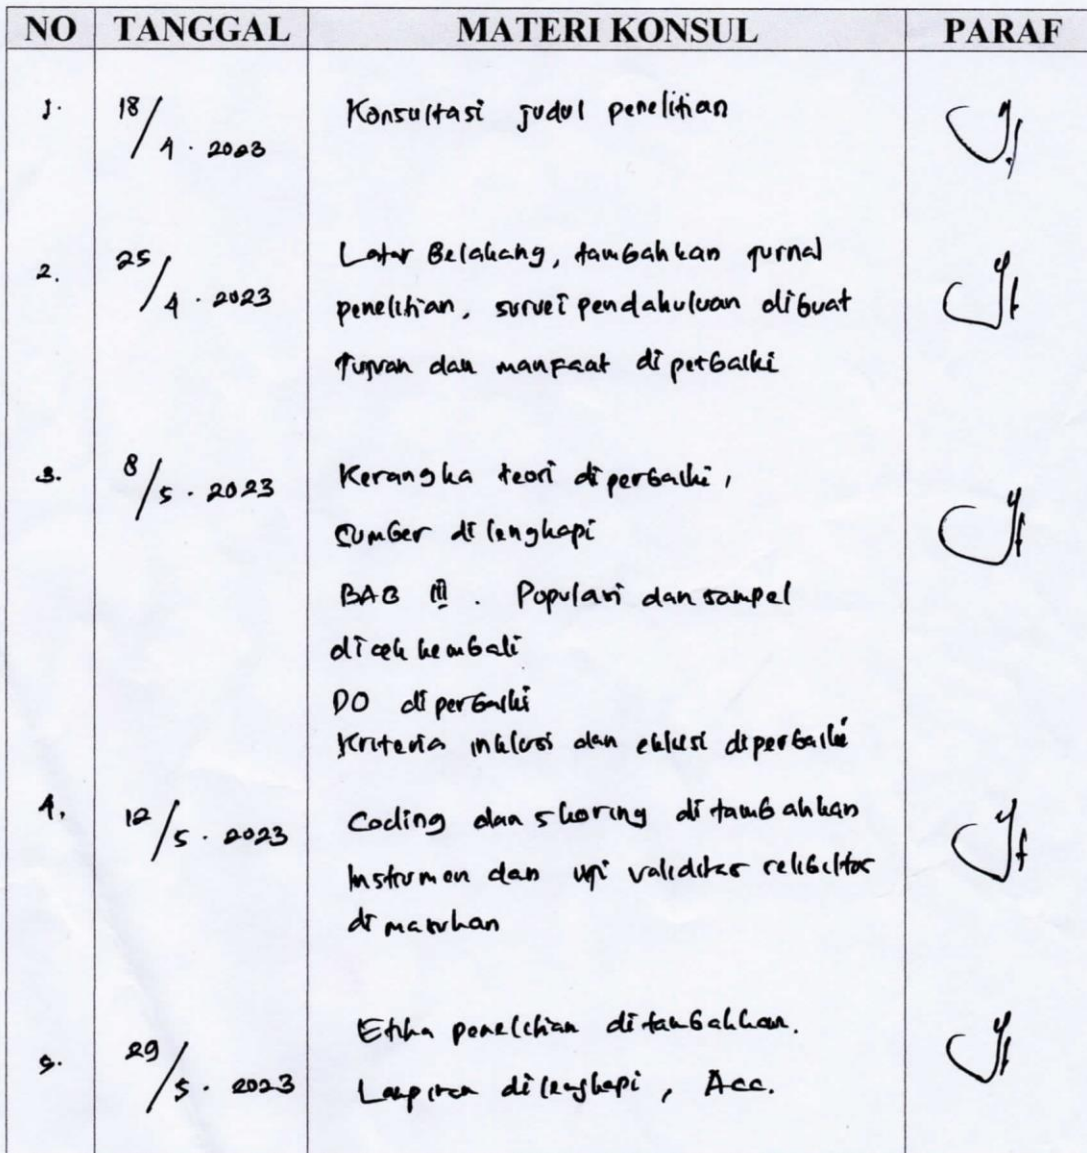 NO TANGGAL MATERI KONSUL PARAF
1. 18/4 . 2023 Konsultasi judul penelitian
2. 25/4 . 2023 Latar Belakang, tambahkan jurnal
penelitian, survei pendahuluan dibuat
Tujuan dan manfaat diperbaiki
3. 8/5 . 2023 Kerangka teori diperbaiki,
Sumber dilengkapi
BAB III . Populasi dan sampel
dicek kembali
DO diperbaiki
Kriteria inklusi dan eklusi diperbaiki
4. 12/5 . 2023 Coding dan skoring ditambahkan
Instrumen dan uji validitas
dimasukan
5. 29/5 . 2023 Etika penelitian ditambahkan.
Lampiran dilengkapi, Acc.